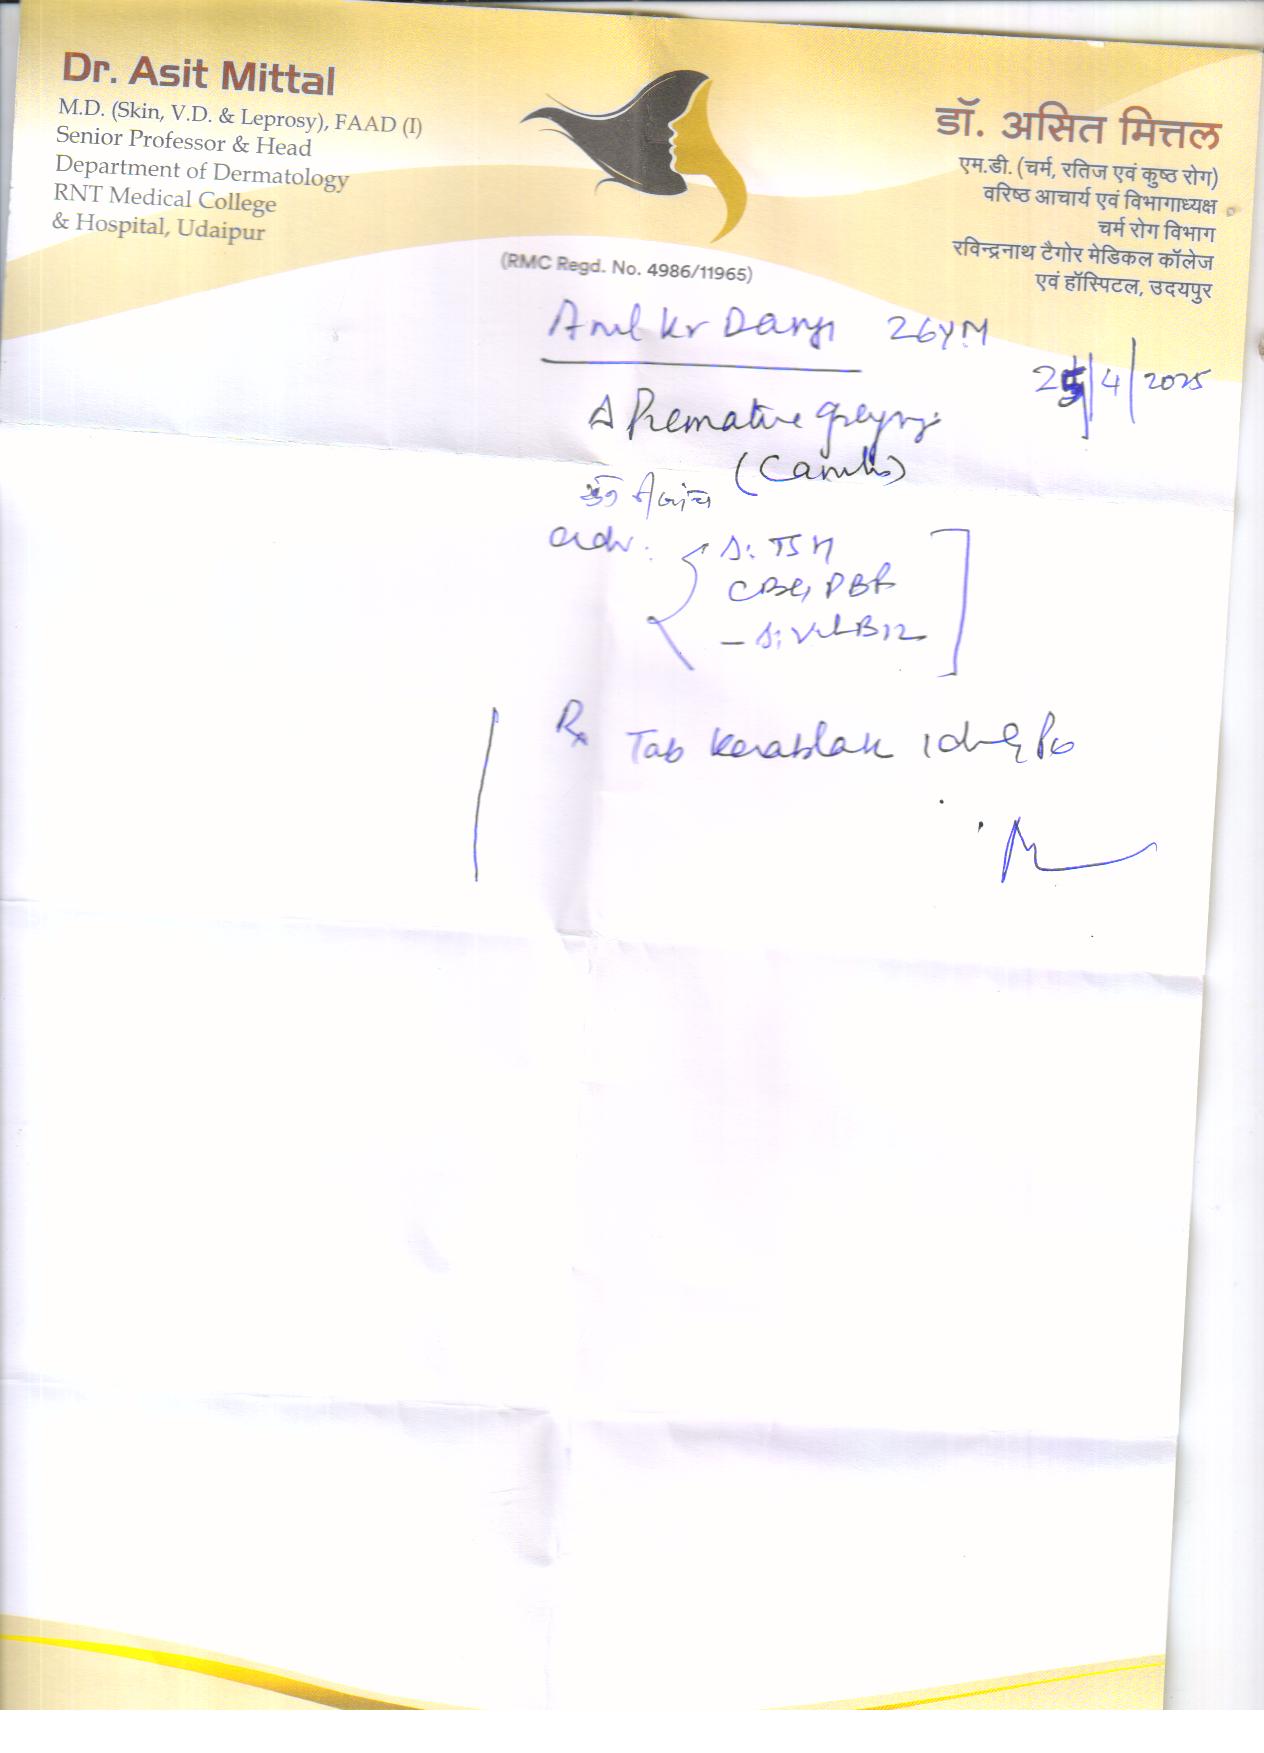 Dr. Asit Mittal
M.D. (Skin, V.D. & Leprosy), FAAD (I)
Senior Professor & Head
Department of Dermatology
RNT Medical College
& Hospital, Udaipur
डॉ. असित मित्तल
एम.डी. (चर्म, रतिज एवं कुष्ठ रोग)
वरिष्ठ आचार्य एवं विभागाध्यक्ष
चर्म रोग विभाग
रविन्द्रनाथ टैगोर मेडिकल कॉलेज
एवं हॉस्पिटल, उदयपुर
(RMC Regd. No. 4986/11965)
Anil Kr 26Y M
25/4/2025
Δ Premature greying
(Canities)
adv:
S. TSH
CBC, PBF
- S. Vit B12
Rx Tab Kerablak 1 daily PO